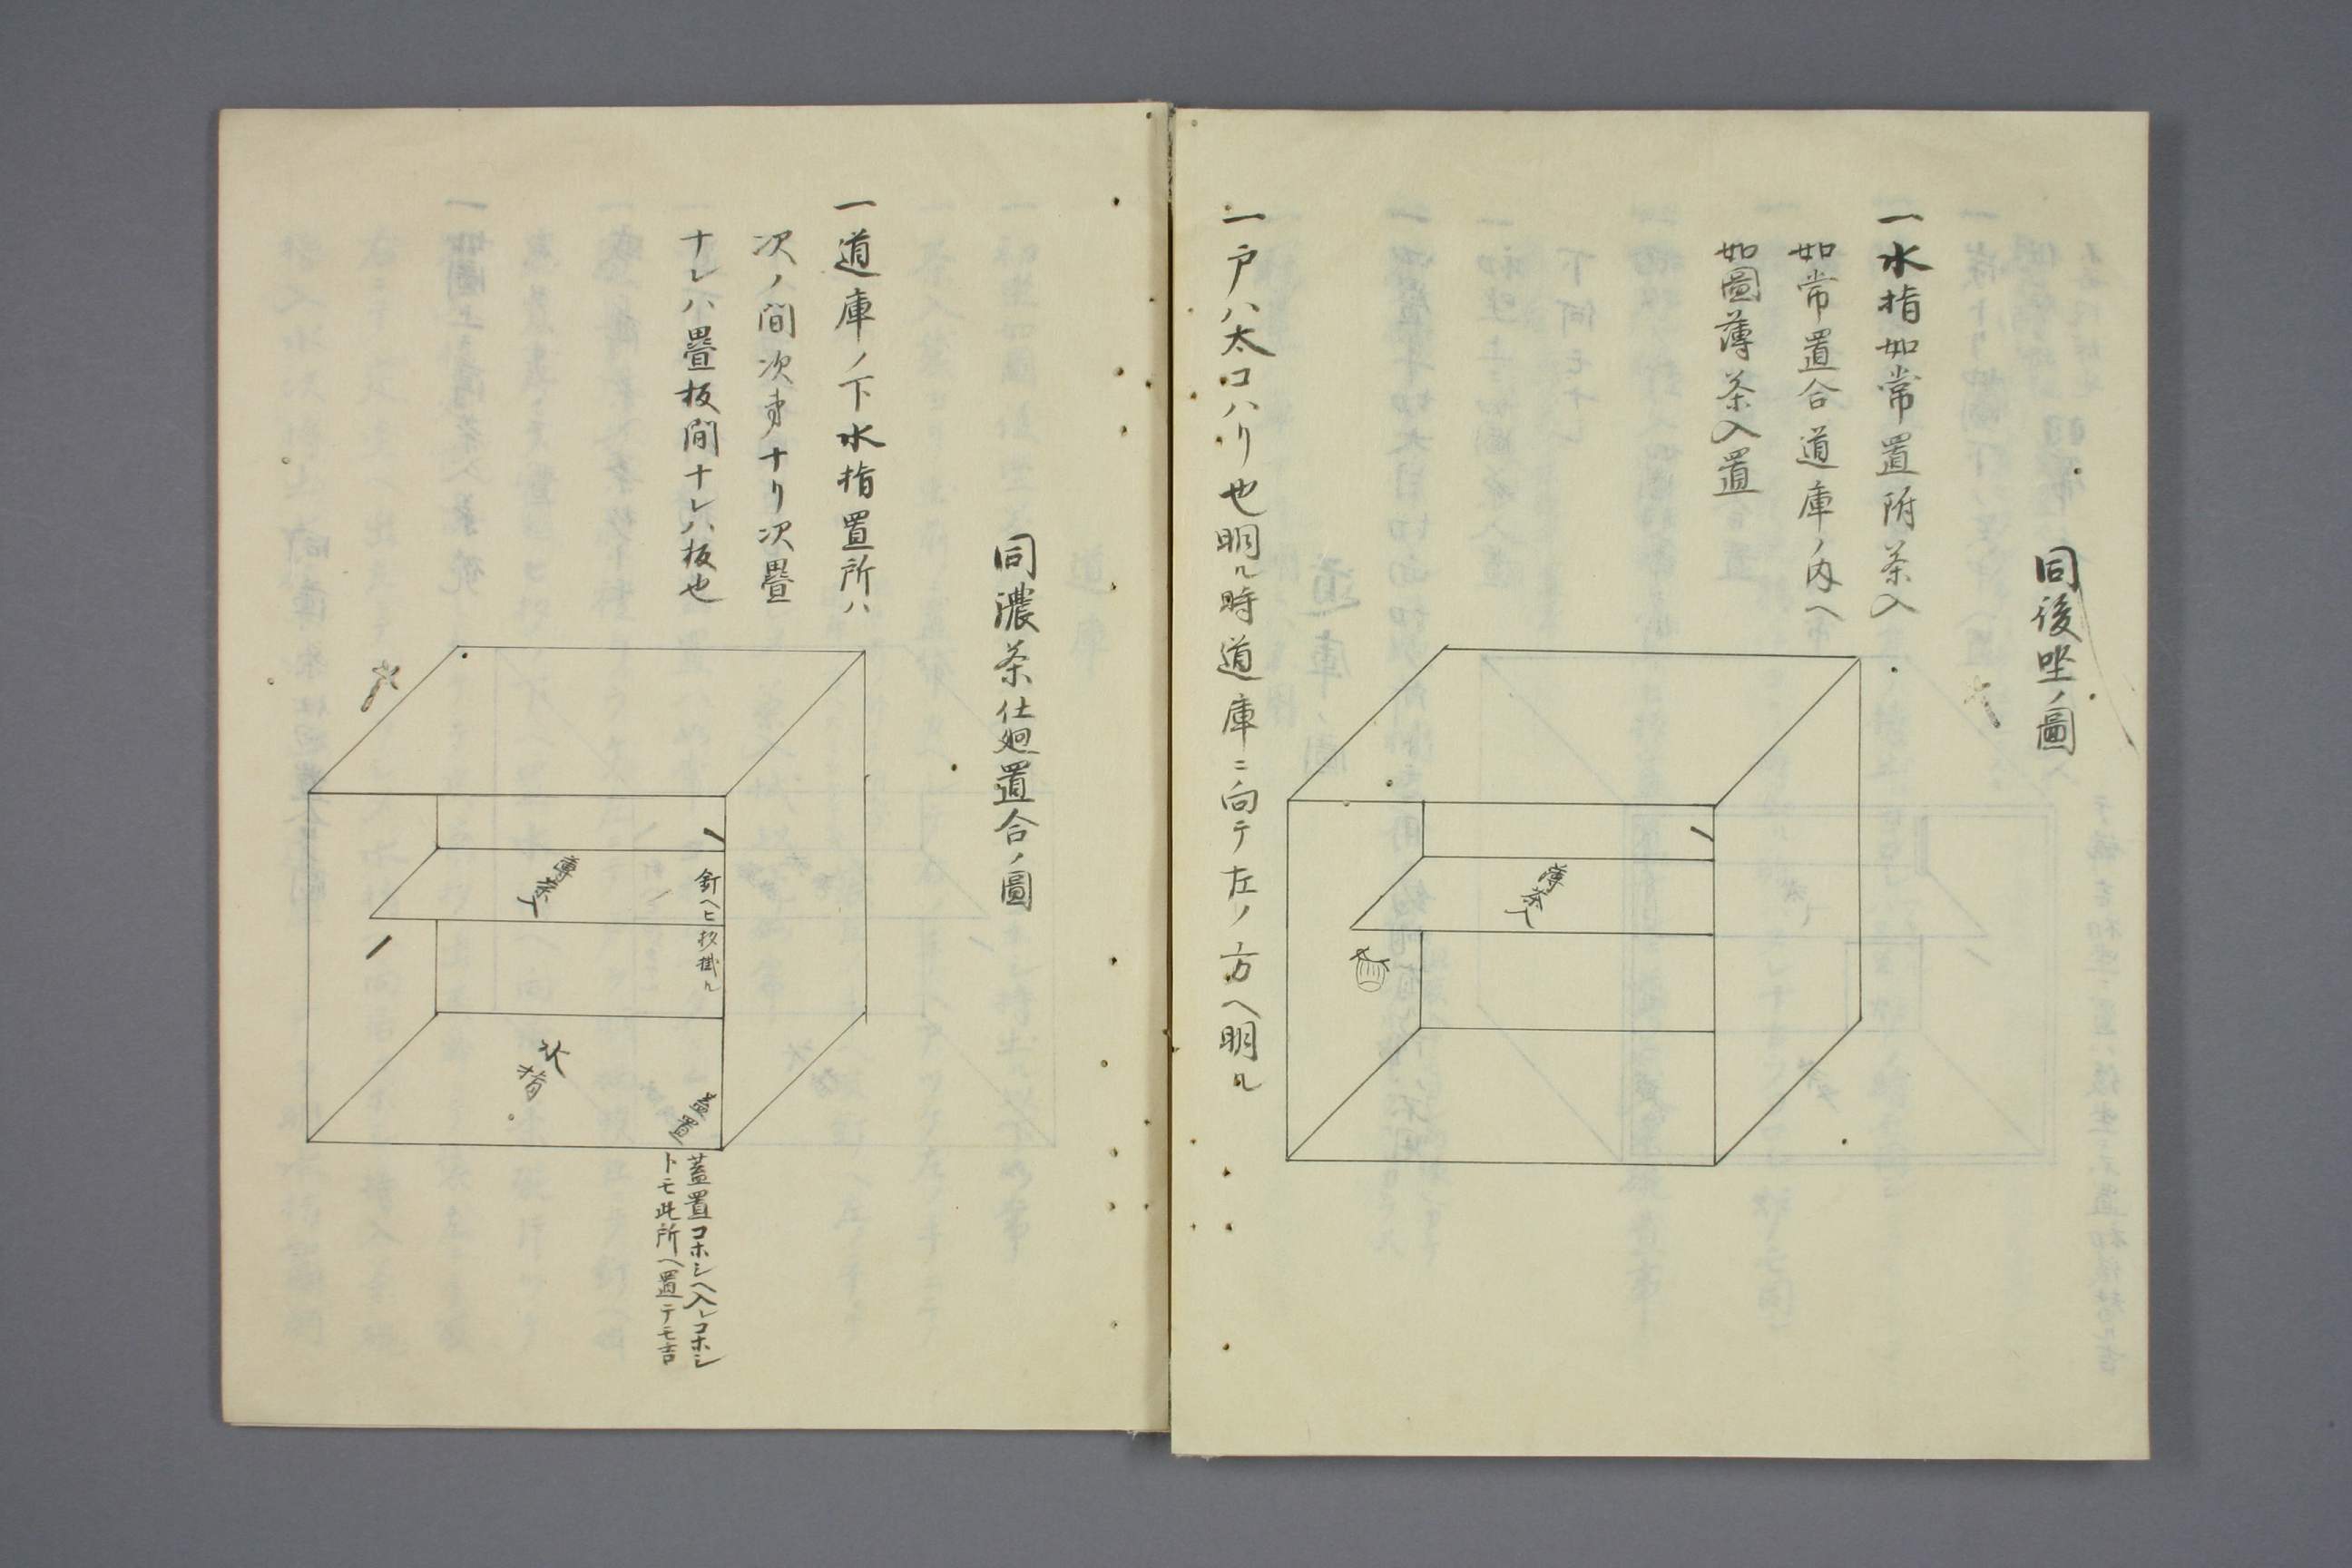 同後坐ノ圖
一水指如常置附茶入
如常置合道庫ノ内ヘ
如圖薄茶入置
薄茶入
一戸ハ太コハリ也明ル時道庫ニ向テ左ノ方ヘ明ル
同濃茶仕廻置合ノ圖
一道庫ノ下水指置所ハ
次ノ間次第ナリ次疊
ナレハ疊板間ナレハ板也
釘ヘヒ杓掛ル
薄茶入
水指
蓋置
蓋置コホシヘ入レコホシ
トモ此所ヘ置テモ吉